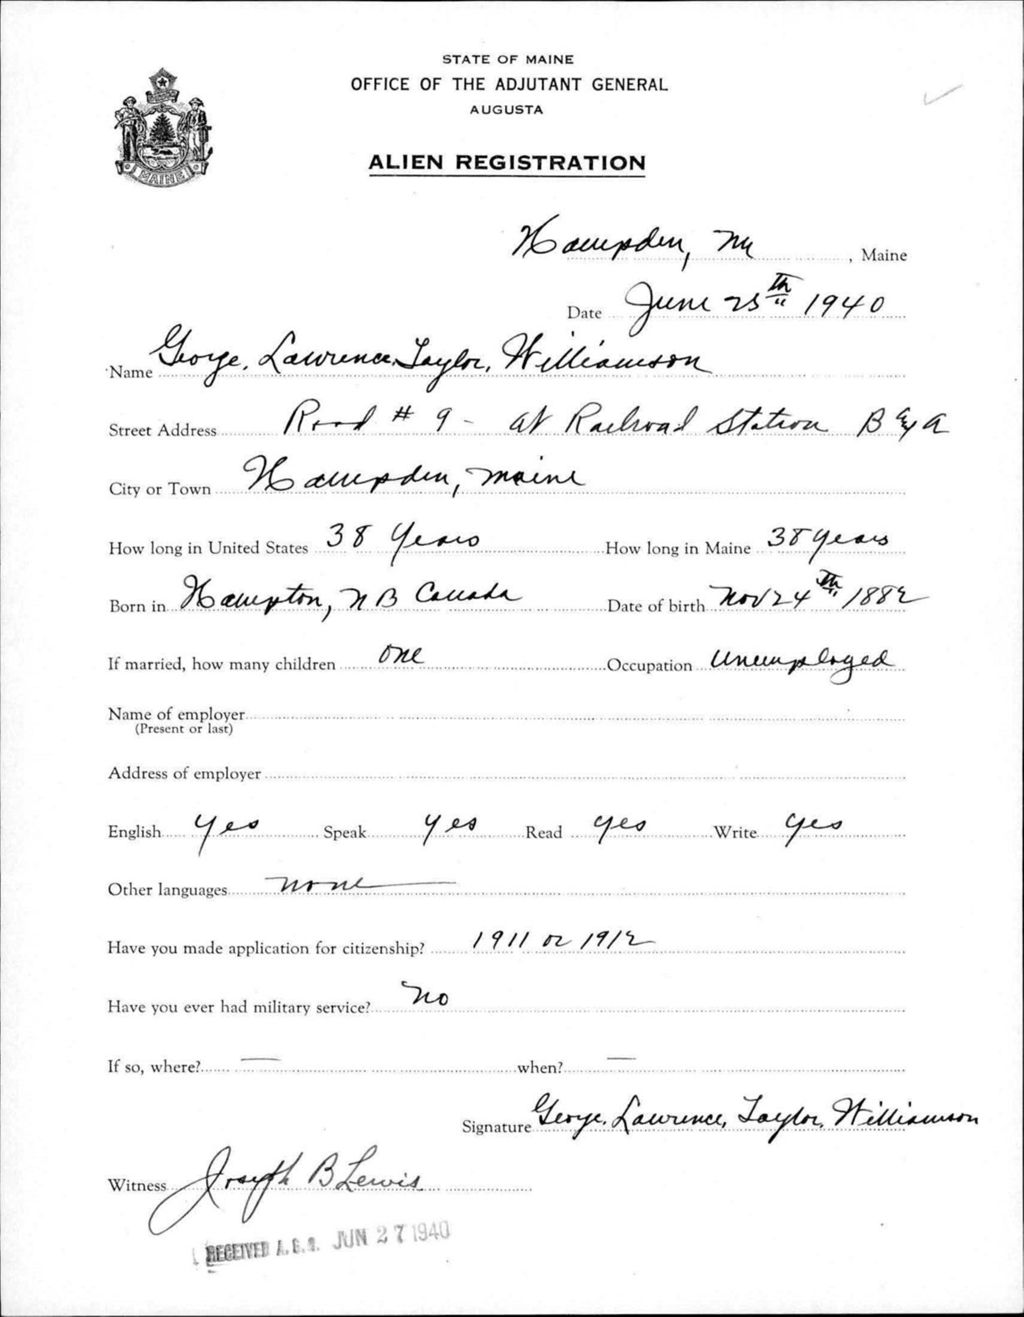 STATE OF MAINE
OFFICE OF THE ADJUTANT GENERAL
AUGUSTA
ALIEN REGISTRATION
MAINE
Hampden, Me, Maine
Date June 25th 1940
Name George, Lawrence, Taylor, Williamson
Street Address Road # 9 - at Railroad Station B & A
City or Town Hampden, Maine
How long in United States 38 Years How long in Maine 38 years
Born in Hampton, N B Canada Date of birth Nov 24th 1882
If married, how many children one Occupation Unemployed
Name of employer
(Present or last)
Address of employer
English Yes Speak Yes Read Yes Write Yes
Other languages none
Have you made application for citizenship? 1911 or 1912
Have you ever had military service? No
If so, where? — when? —
Signature George, Lawrence, Taylor, Williamson
Witness Joseph B Lewis
RECEIVED A.G.O. JUN 27 1940